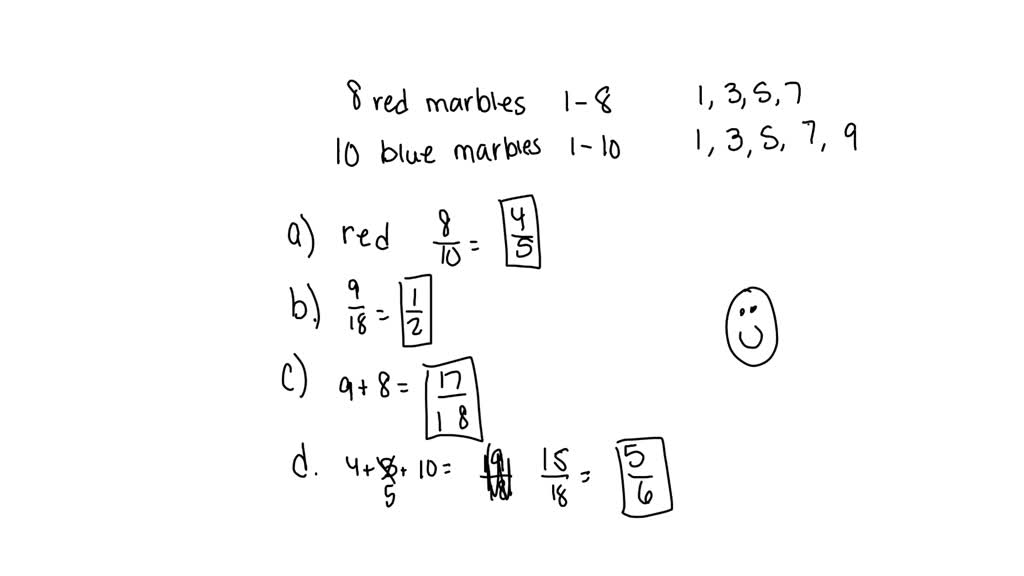 8 red marbles 1-8 1, 3, 5, 7
10 blue marbles 1-10 1, 3, 5, 7, 9
a) red 8/10 = 4/5
b.) 9/18 = 1/2
c) 9 + 8 = 17/18
d. 4 + 5 + 10 = 15/18 = 5/6